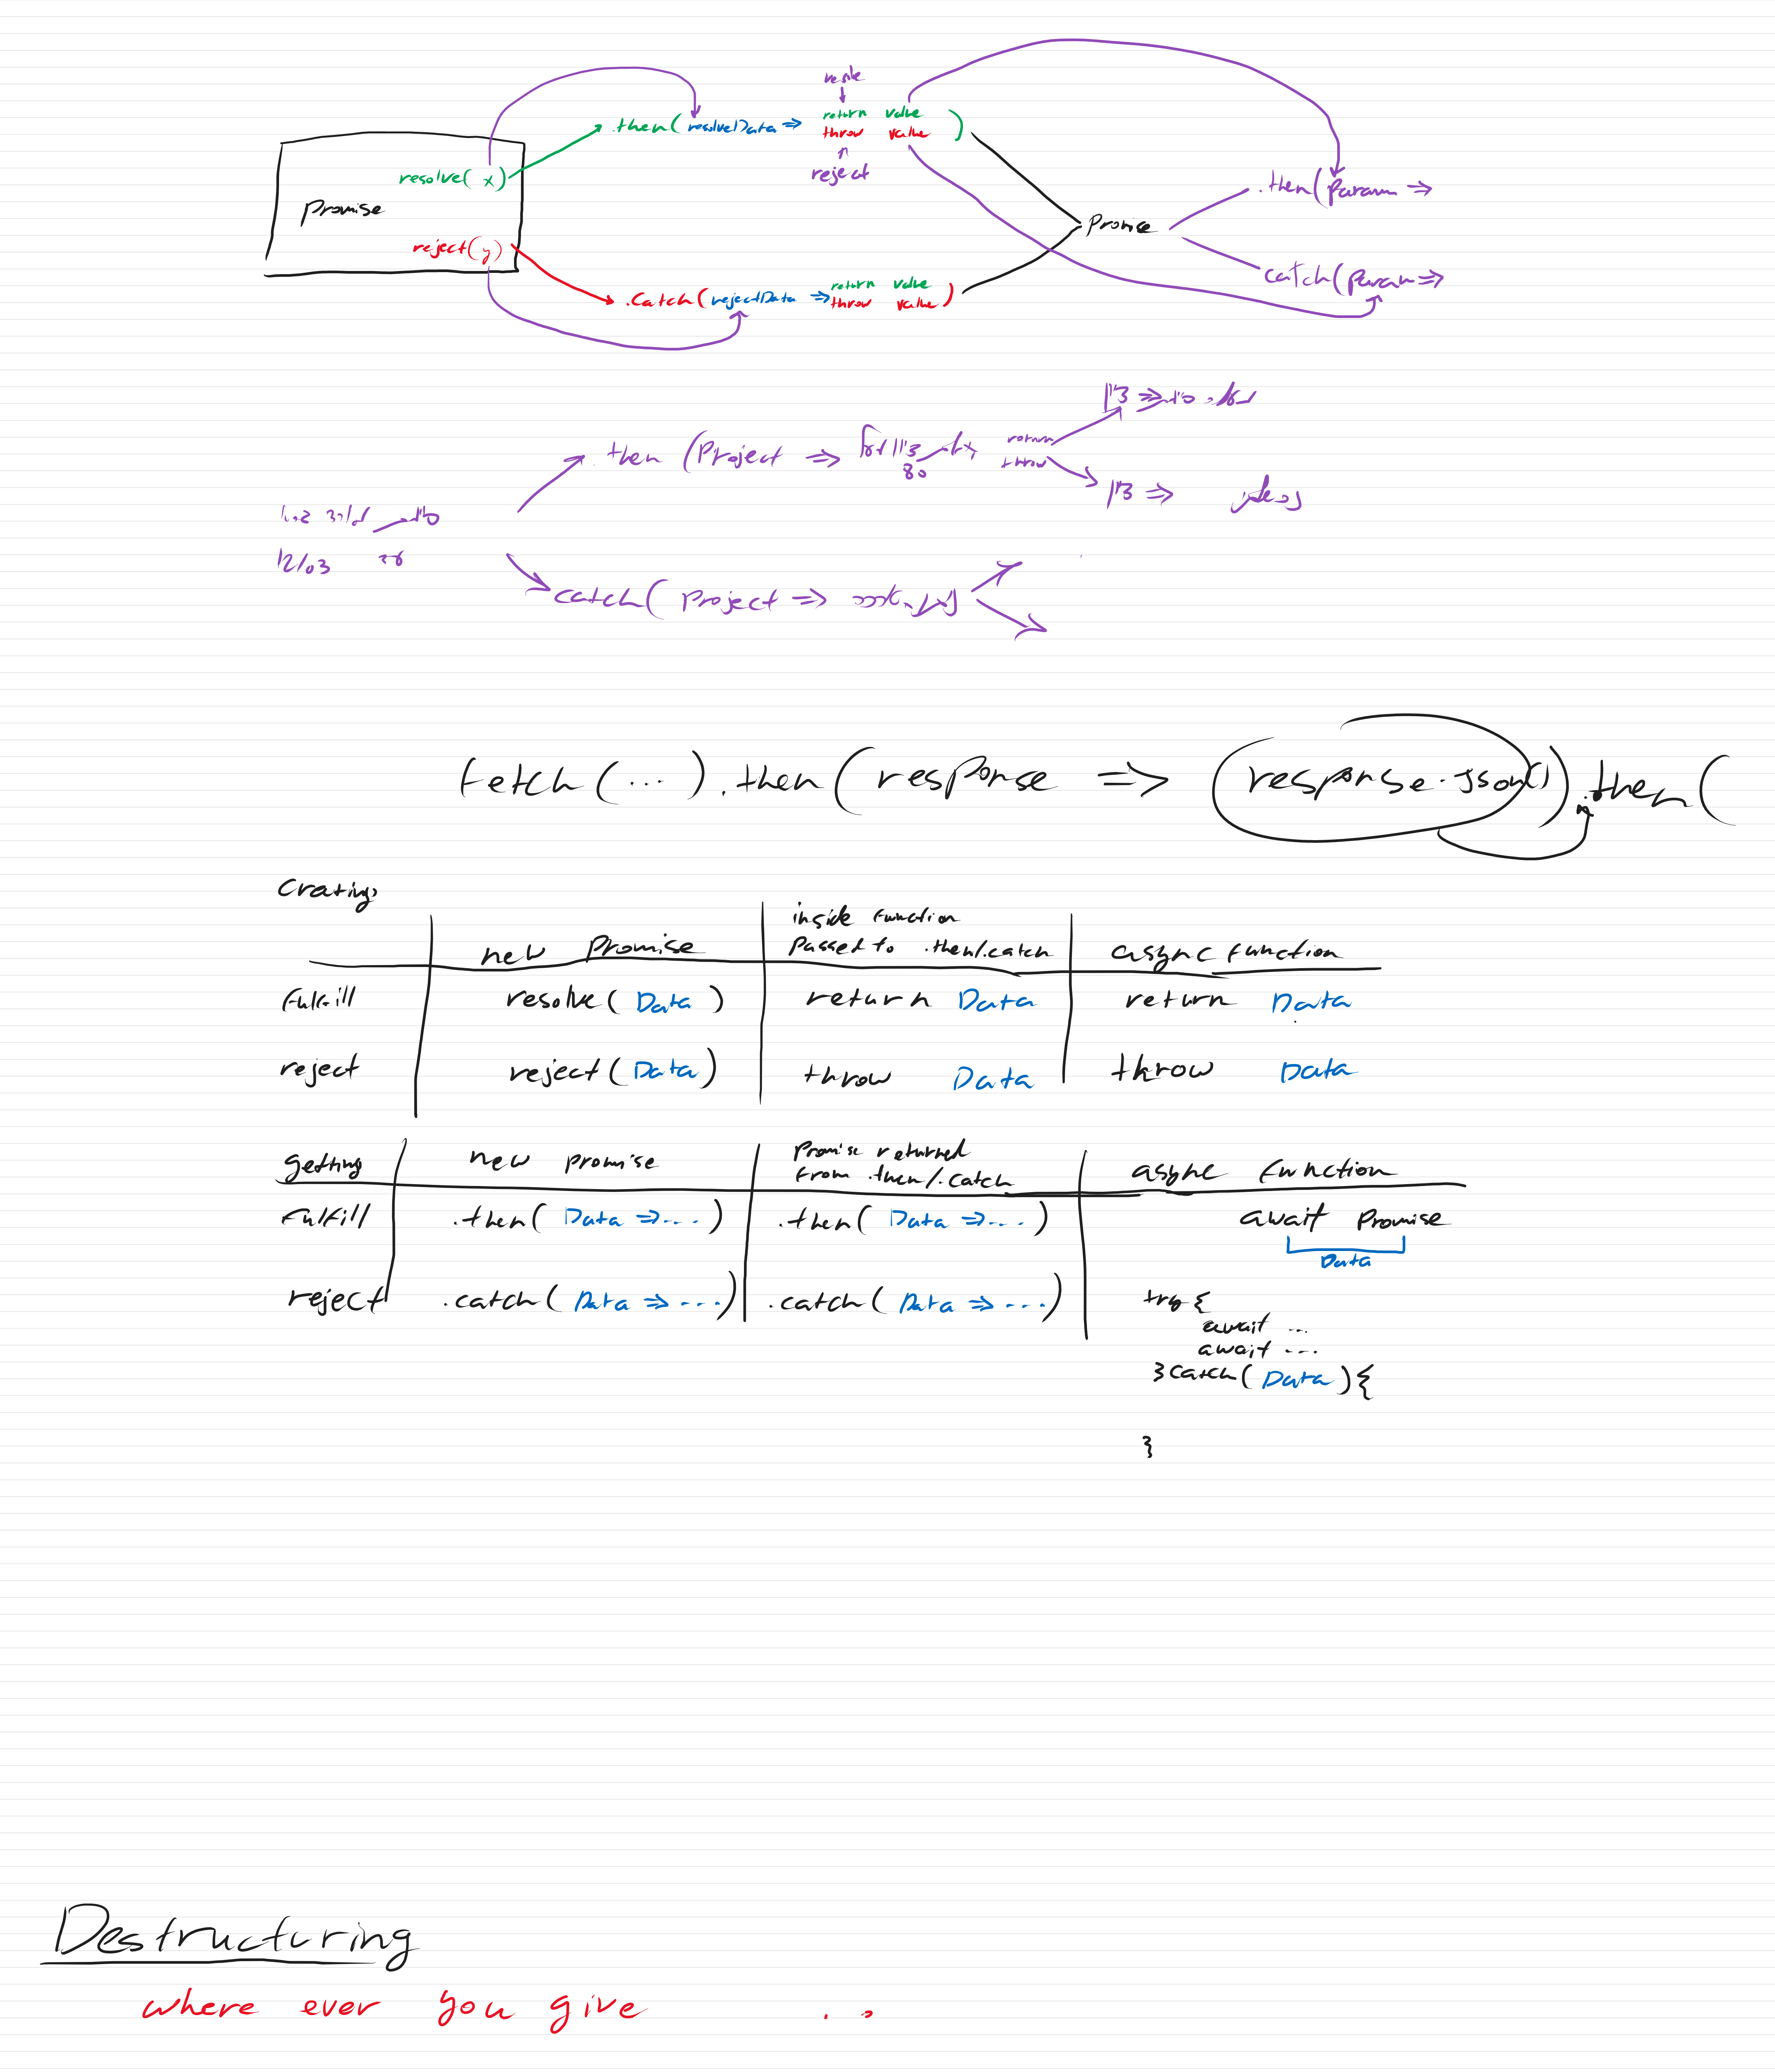 resolve
.then( resolveData => return value )
throw value
reject
resolve( x )
Promise
reject(y)
.then(param =>
Promise
catch(param =>
.catch( rejectData => return value )
throw value
.then (Project =>
return
throw
catch( Project =>
fetch(...).then(response => (response.json()).then(
Crating
new Promise
inside function
Passed to .then/.catch
async function
fulfill
resolve( Data )
return Data
return Data
reject
reject( Data )
throw Data
throw Data
getting
new promise
Promise returned
from .then/.catch
async function
fulfill
.then( Data => ... )
.then( Data => ... )
await Promise
Data
reject
.catch( Data => ... )
.catch( Data => ... )
try {
await ...
await ...
}catch( Data ){
}
Destructuring
where ever you give